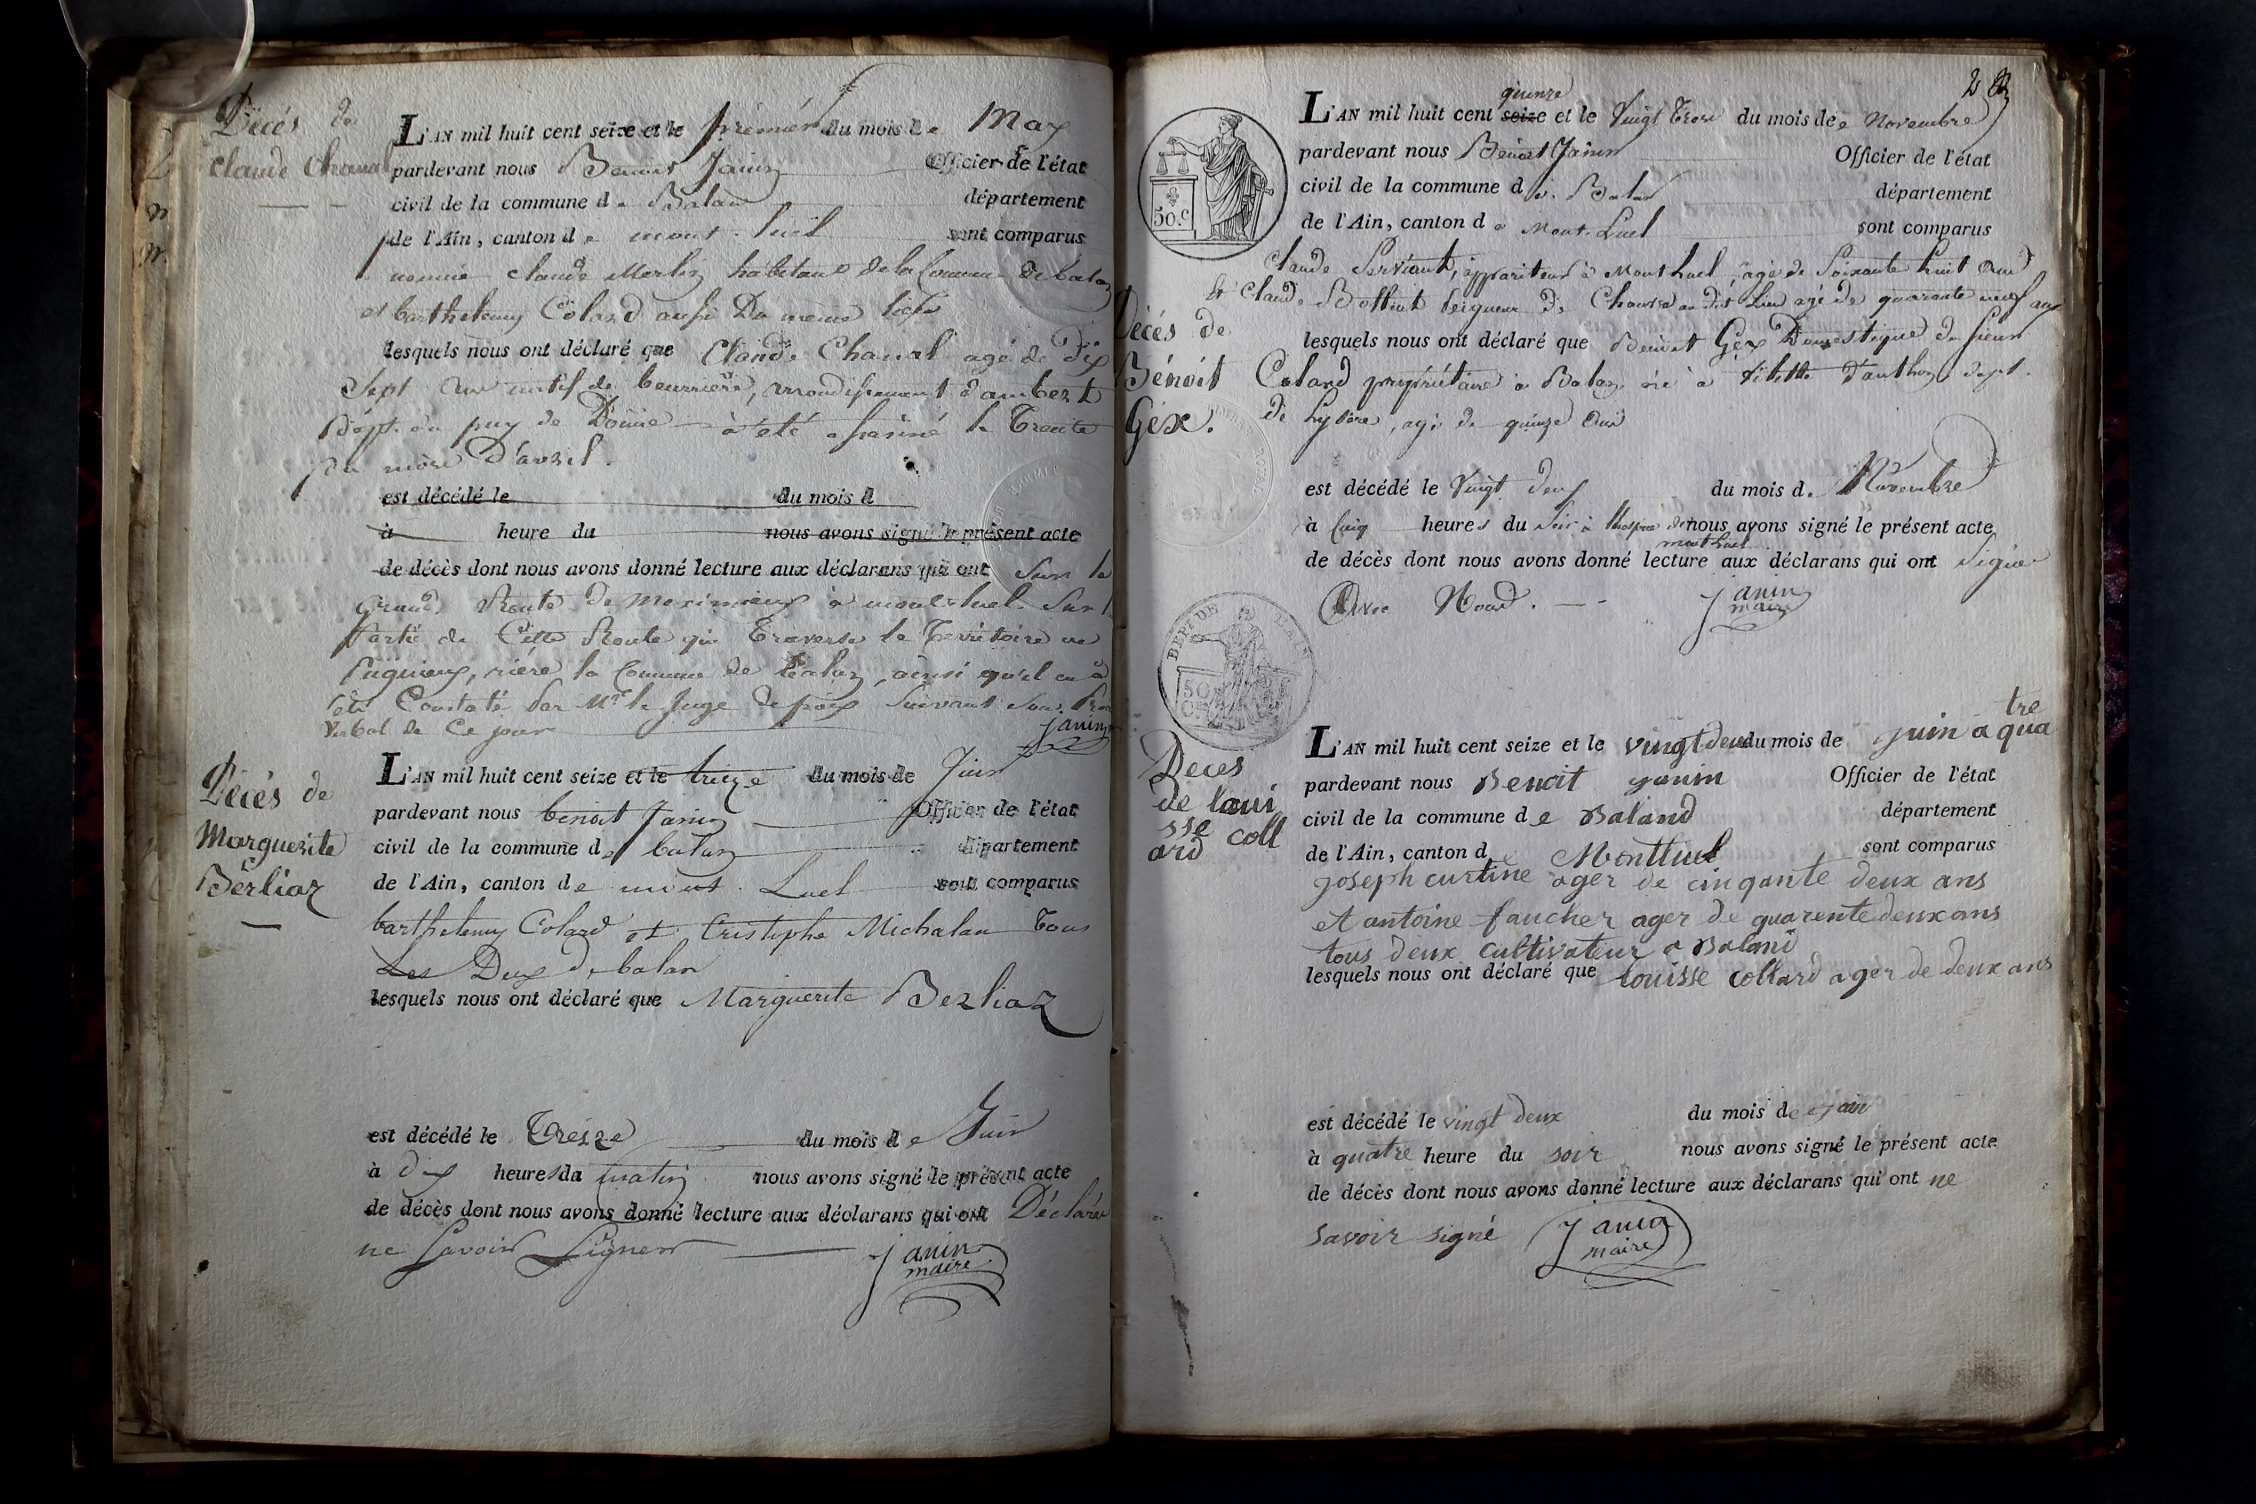 Décés de
Claude Chaval
L'AN mil huit cent seize et le premier du mois de May
pardevant nous Benoit Janin Officier de l'état
civil de la commune de Balan département
de l'Ain, canton de mont-luel sont comparus
claude Merlin habitant de la Commune de balan
et barthelemy Coland aussi Du meme lieu
lesquels nous ont déclaré que Claude Chaval agé de Dix
Sept ans natif de beurrière, arrondissement d'ambert
Dépt. du puy de Dôme à été assassiné le Trente
du mois D'avril.
est décédé le du mois d
à heure du nous avons signé le présent acte
de décès dont nous avons donné lecture aux déclarans qui ont Sur la
Grande Route de Meximieux à montluel Sur la
Partie de Cette Route qui Traverse le Territoire de
rière la Commune de balan, ainsi qu'il en a
été Constaté Par Mr. le Juge de paix Suivant Son
Verbal de Ce jour janin
Décés de
Marguerite
Berliaz
L'AN mil huit cent seize et le treize du mois de Juin
pardevant nous benoit Janin Officier de l'état
civil de la commune de balan département
de l'Ain, canton de mont Luel sont comparus
barthelemy Coland et Cristophe Michalan Tous
Les Deux de balan
lesquels nous ont déclaré que Marguerite Berliaz
est décédé le Treize du mois de Juin
à dix heures du matin nous avons signé le présent acte
de décès dont nous avons donné lecture aux déclarans qui ont Déclaré
ne Savoir Signer
janin
maire
50.c
quinze
L'AN mil huit cent seize et le Vingt Trois du mois de Novembre
pardevant nous Benoit Janin Officier de l'état
civil de la commune de Balan département
de l'Ain, canton de Mont-Luel sont comparus
Claude Servant, appariteur à Montluel agé de Soixante huit ans
et Claude peigneur de Chanvre au dit Lieu agé de quarante neuf ans
Décés de
Bénoit
Géx.
lesquels nous ont déclaré que Benoit Géx Domestique du Sieur
Coland propriétaire à Balan né à d'anthon, dept.
de Lysère, agé de quinze ans
est décédé le Vingt deux du mois de Novembre
à Cinq heures du Soir à lhospice de nous avons signé le présent acte
montluel
de décès dont nous avons donné lecture aux déclarans qui ont Signé
Avec Nous.
janin
maire
DEPt. DE L'AIN
50
C
Deces
de loui
sse coll
ard
tre
L'AN mil huit cent seize et le vingt deux du mois de juin a qua
pardevant nous Benoit janin Officier de l'état
civil de la commune de Baland département
de l'Ain, canton d Montluel sont comparus
joseph curtine ager de cinqante deux ans
et antoine faucher ager de quarente deux ans
tous deux cultivateur a Baland
lesquels nous ont déclaré que louisse collard ager de deux ans
est décédé le vingt deux du mois de juin
à quatre heure du soir nous avons signé le présent acte
de décès dont nous avons donné lecture aux déclarans qui ont ne
savoir signé
janin
maire